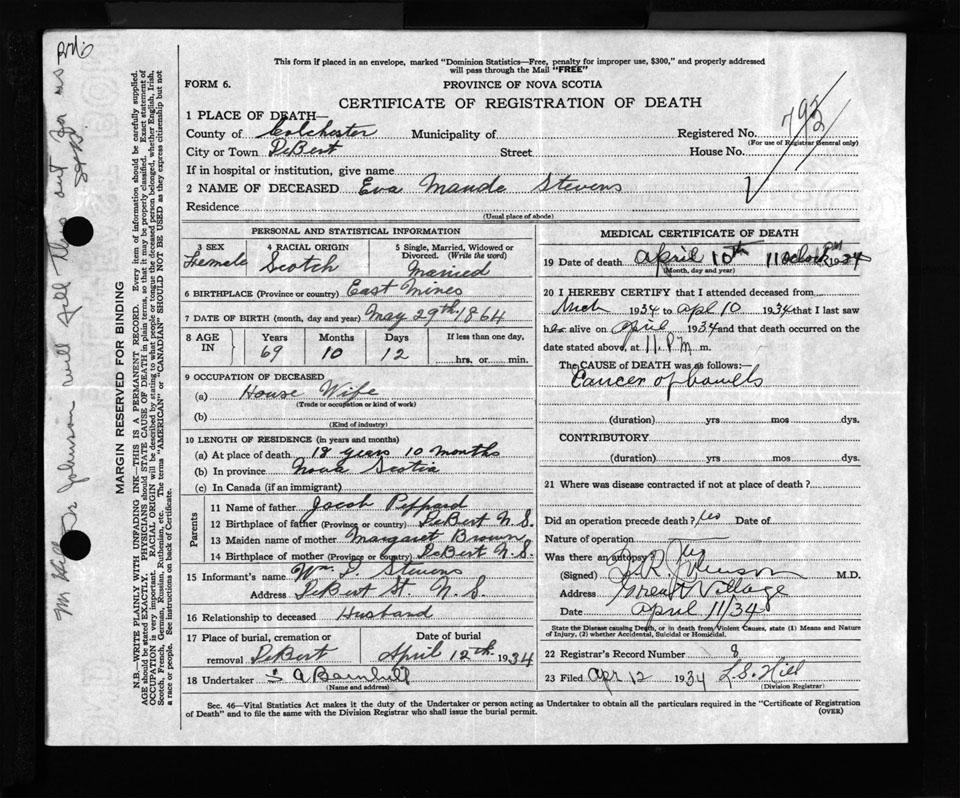 This form if placed in an envelope, marked "Dominion Statistics—Free, penalty for improper use, $300," and properly addressed
will pass through the Mail "FREE"
FORM 6.
PROVINCE OF NOVA SCOTIA
CERTIFICATE OF REGISTRATION OF DEATH
1 PLACE OF DEATH—
County of Colchester Municipality of Registered No. 792
(For use of Registrar General only)
City or Town DeBert Street House No.
If in hospital or institution, give name
2 NAME OF DECEASED Eva Maude Stevens
Residence
(Usual place of abode)
PERSONAL AND STATISTICAL INFORMATION
3 SEX 4 RACIAL ORIGIN 5 Single, Married, Widowed or Divorced. (Write the word)
Female Scotch Married
6 BIRTHPLACE (Province or country) East Mines
7 DATE OF BIRTH (month, day and year) May 29th 1864
8 AGE IN Years Months Days If less than one day,
69 10 12 hrs. or min.
9 OCCUPATION OF DECEASED
(a) House Wife
(Trade or occupation or kind of work)
(b)
(Kind of industry)
10 LENGTH OF RESIDENCE (in years and months)
(a) At place of death 18 years 10 months
(b) In province Nova Scotia
(c) In Canada (if an immigrant)
Parents
11 Name of father Jacob Peppard
12 Birthplace of father (Province or country) DeBert N.S.
13 Maiden name of mother Margaret Brown
14 Birthplace of mother (Province or country) DeBert N.S.
15 Informant's name Wm. P. Stevens
Address DeBert St. N.S.
16 Relationship to deceased Husband
17 Place of burial, cremation or Date of burial
removal DeBert April 12th 1934
18 Undertaker
(Name and address)
MEDICAL CERTIFICATE OF DEATH
19 Date of death April 10th 11 oclock PM 1934
(Month, day and year)
20 I HEREBY CERTIFY that I attended deceased from
1934 to Apl 10 1934 that I last saw
her alive on April 1934 and that death occurred on the
date stated above, at 11. P.M m.
The CAUSE OF DEATH was as follows:—
Cancer of bowels
(duration) yrs mos dys.
CONTRIBUTORY
(duration) yrs mos dys.
21 Where was disease contracted if not at place of death?
Did an operation precede death? yes Date of
Nature of operation
Was there an autopsy
(Signed) Johnson M.D.
Address Great Village
Date April 11/34
State the Disease causing Death, or in death from Violent Causes, state (1) Means and Nature
of Injury, (2) whether Accidental, Suicidal or Homicidal.
22 Registrar's Record Number 8
23 Filed Apr 12 1934 L.S. Hill
(Division Registrar)
Sec. 46—Vital Statistics Act makes it the duty of the Undertaker or person acting as Undertaker to obtain all the particulars required in the "Certificate of Registration
of Death" and to file the same with the Division Registrar who shall issue the burial permit.
(OVER)
MARGIN RESERVED FOR BINDING
N.B.—WRITE PLAINLY WITH UNFADING INK—THIS IS A PERMANENT RECORD. Every item of information should be carefully supplied.
AGE should be stated EXACTLY. PHYSICIANS should STATE CAUSE OF DEATH in plain terms, so that it may be properly classified. Exact statement of
OCCUPATION is very important. RACIAL ORIGIN will be described by stating to what people or tongue the deceased person belonged, whether English, Irish,
Scotch, French, German, Russian, Ruthenian, etc. The terms "AMERICAN" or "CANADIAN" SHOULD NOT BE USED as they express citizenship but not
a race or people. See instructions on back of Certificate.
Mr Hill Dr Johnson will fill this out for us